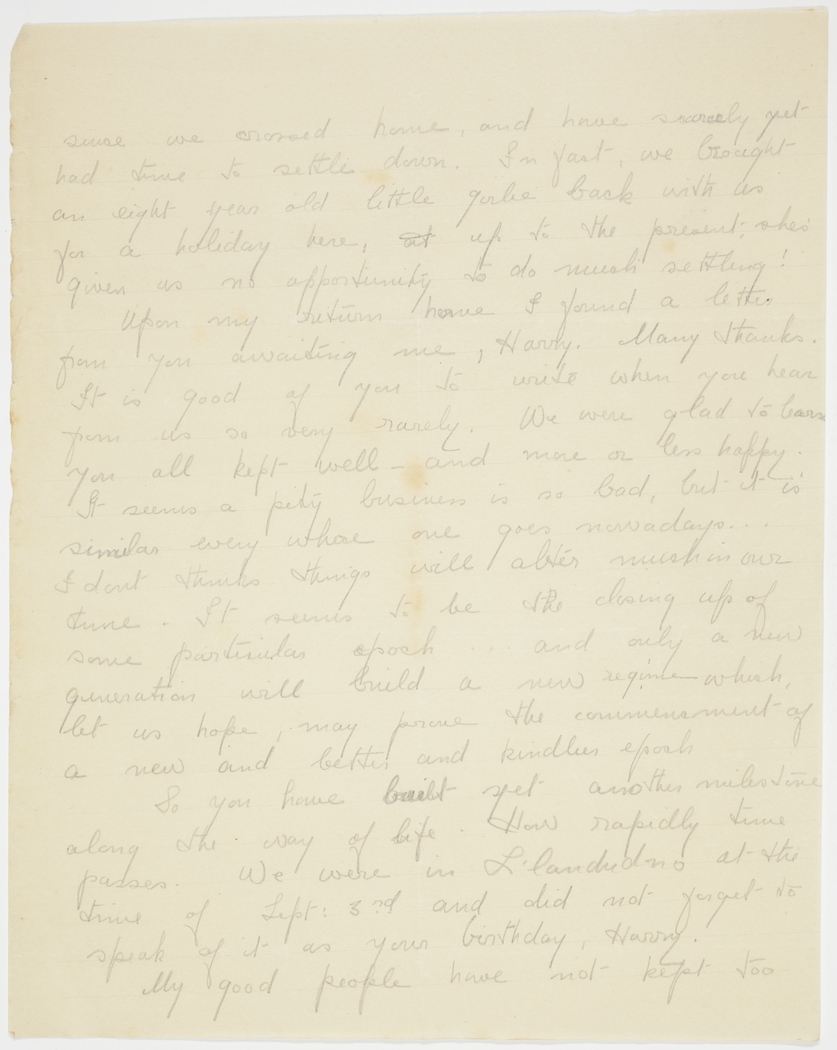 since we crossed home, and have scarcely yet
had time to settle down. In fact, we brought
an eight year old little girlie back with us
for a holiday here, at up to the present, she's
given us no opportunity to do much settling!
Upon my return home I found a letter
from you awaiting me, Harry. Many thanks.
It is good of you to write when you hear
from us so very rarely. We were glad to learn
you all kept well - and more or less happy.
It seems a pity business is so bad, but it is
similar every where one goes nowadays...
I dont think things will alter much in our
time. It seems to be the closing up of
some particular epoch ... and only a new
generation will build a new regime which,
let us hope, may prove the commencement of
a new and better and kindlier epoch
So you have built yet another milestone
along the way of life. How rapidly time
passes. We were in L'landudno at the
time of Sept: 3rd and did not forget to
speak of it as your birthday, Harry.
My good people have not kept too